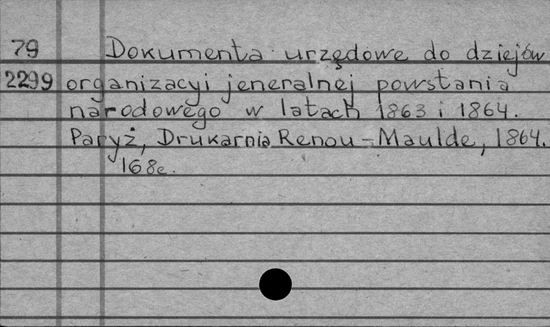 79 Dokumenta urzędowe do dziejów
2299 organizacyi jeneralnej powstania
narodowego w latach 1863 i 1864.
Paryż, Drukarnia Renou-Maulde, 1864.
168e.